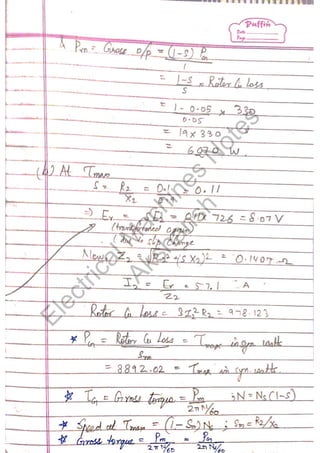 Puffin
Date
Page
Pm = Gross o/p = (1-S) Pin
1
= 1-S × Rotor Cu loss
S
= 1 - 0.05 × 330
0.05
= 19 × 330
= 6270 W.
(b) At Tmax
S = R2 = 0.11
X2
⇒ Er = 726 = 807 V
(transformed again
due to slip change
Now, Z2 = = 0.1407 Ω
I2 = Er = 57.1 A
Z2
Rotor Cu loss = 3I2² R2 = 978.123
* PG = Rotor Cu Loss = Tmax in syn. watts
Sm
= 8892.02 = Tmax in syn. watts.
* TG = Gross torque = Pm ; N = Ns(1-S)
2πN/60
* Speed at Tmax = (1-Sm) Ns ; Sm = R2/X2
* Gross torque = Pm = PG
2πN/60 2πNs/60
Electrical Machines Notes